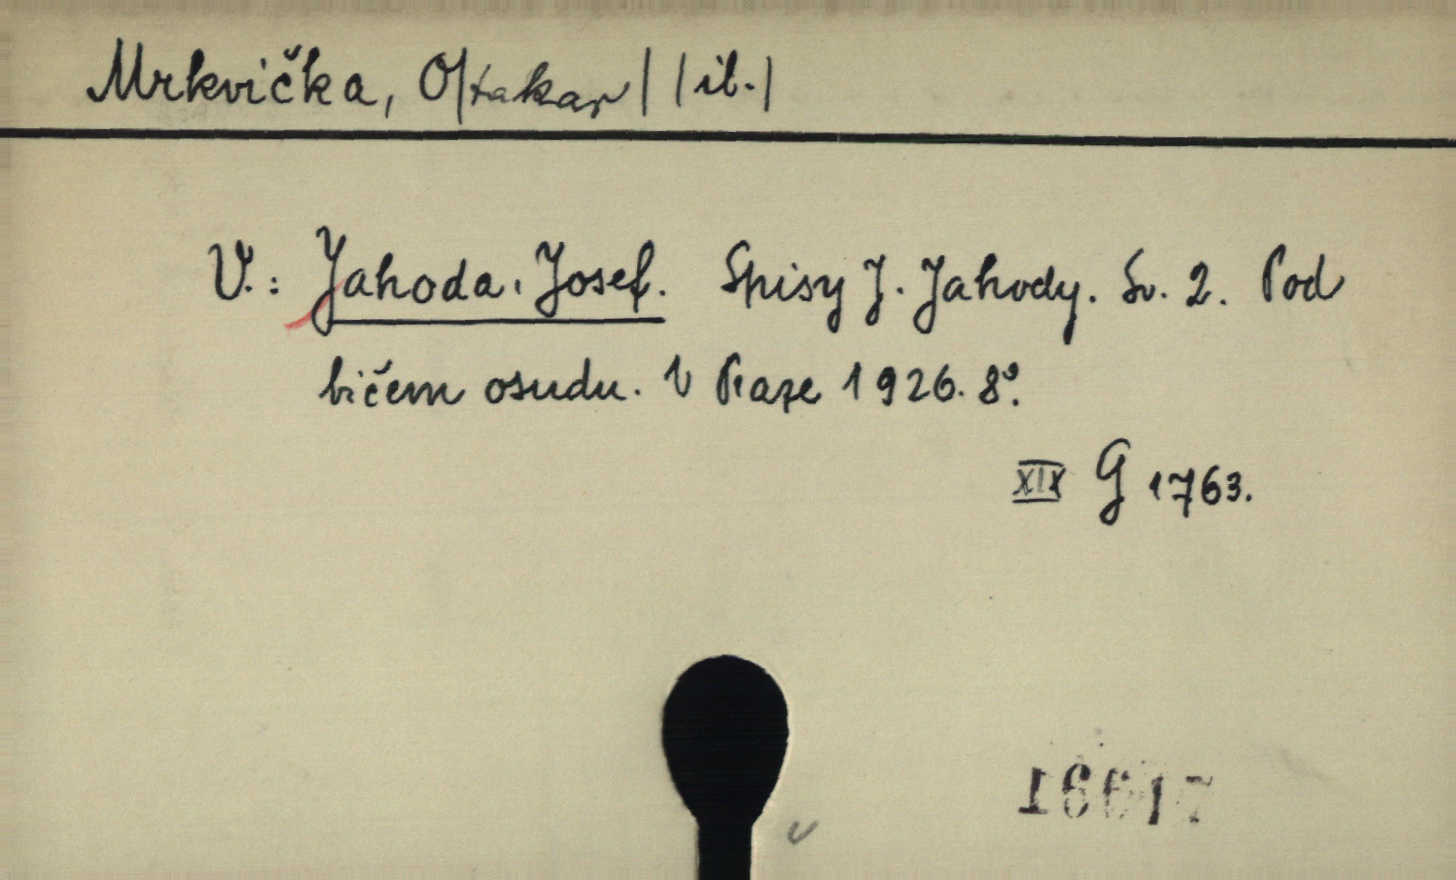 Mrkvička, O/takar/ /il./
V.: Jahoda, Josef. Spisy J. Jahody. Sv. 2. Pod
bičem osudu. V Praze 1926. 8°.
XIX G 1763.